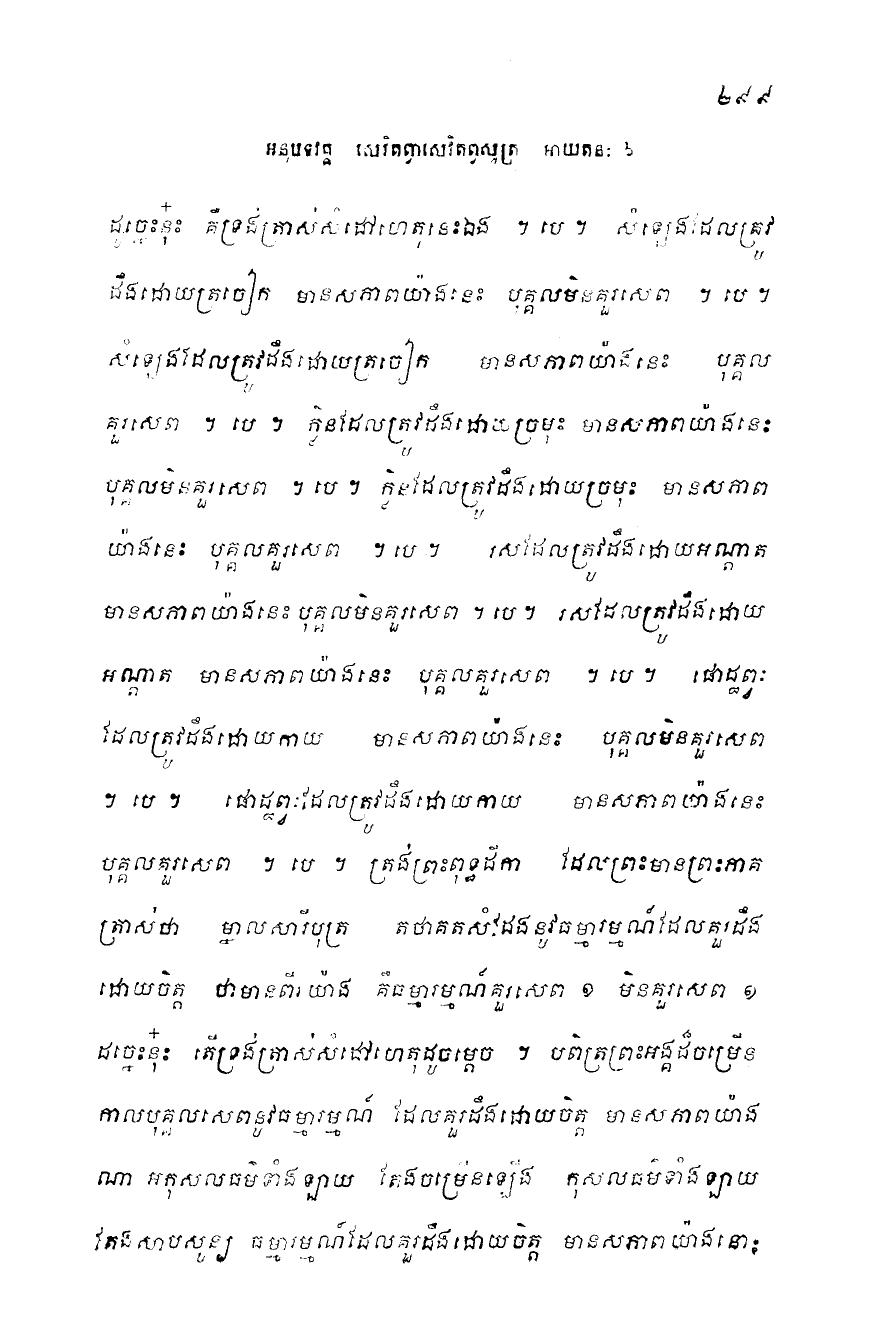 ២៩៩
អនុបទវគ្គ សេវិតព្វាសេវិតព្វសូត្រ អាយតនៈ ៦
ដូច្នេះនុ៎ះ គឺទ្រង់ត្រាស់សំដៅហេតុនេះឯង ។ បេ ។ សំឡេងដែលត្រូវ
ដឹងដោយត្រចៀក មានសភាពយ៉ាងនេះ បុគ្គលមិនគួរសេព ។ បេ ។
សំឡេងដែលត្រូវដឹងដោយត្រចៀក មានសភាពយ៉ាងនេះ បុគ្គល
គួរសេព ។ បេ ។ ក្លិនដែលត្រូវដឹងដោយច្រមុះ មានសភាពយ៉ាងនេះ
បុគ្គលមិនគួរសេព ។ បេ ។ ក្លិនដែលត្រូវដឹងដោយច្រមុះ មានសភាព
យ៉ាងនេះ បុគ្គលគួរសេព ។ បេ ។ រសដែលត្រូវដឹងដោយអណ្តាត
មានសភាពយ៉ាងនេះ បុគ្គលមិនគួរសេព ។ បេ ។ រសដែលត្រូវដឹងដោយ
អណ្តាត មានសភាពយ៉ាងនេះ បុគ្គលគួរសេព ។ បេ ។ ផោដ្ឋព្វៈ
ដែលត្រូវដឹងដោយកាយ មានសភាពយ៉ាងនេះ បុគ្គលមិនគួរសេព
។ បេ ។ ផោដ្ឋព្វៈដែលត្រូវដឹងដោយកាយ មានសភាពយ៉ាងនេះ
បុគ្គលគួរសេព ។ បេ ។ ត្រង់ព្រះពុទ្ធដីកា ដែលព្រះមានព្រះភាគ
ត្រាស់ថា ម្នាលសារីបុត្រ តថាគតសំដែងនូវធម្មារម្មណ៍ដែលគួរដឹង
ដោយចិត្ត ថាមានពីរយ៉ាង គឺធម្មារម្មណ៍គួរសេព ១ មិនគួរសេព ១
ដច្នេះនុ៎ះ តើទ្រង់ត្រាស់សំដៅហេតុដូចម្តេច ។ បពិត្រព្រះអង្គដ៏ចម្រើន
កាលបុគ្គលសេពនូវធម្មារម្មណ៍ ដែលគួរដឹងដោយចិត្ត មានសភាពយ៉ាង
ណា អកុសលធម៌ទាំងឡាយ តែងចម្រើនឡើង កុសលធម៌ទាំងឡាយ
តែងសាបសូន្យ ធម្មារម្មណ៍ដែលគួរដឹងដោយចិត្ត មានសភាពយ៉ាងនោះ